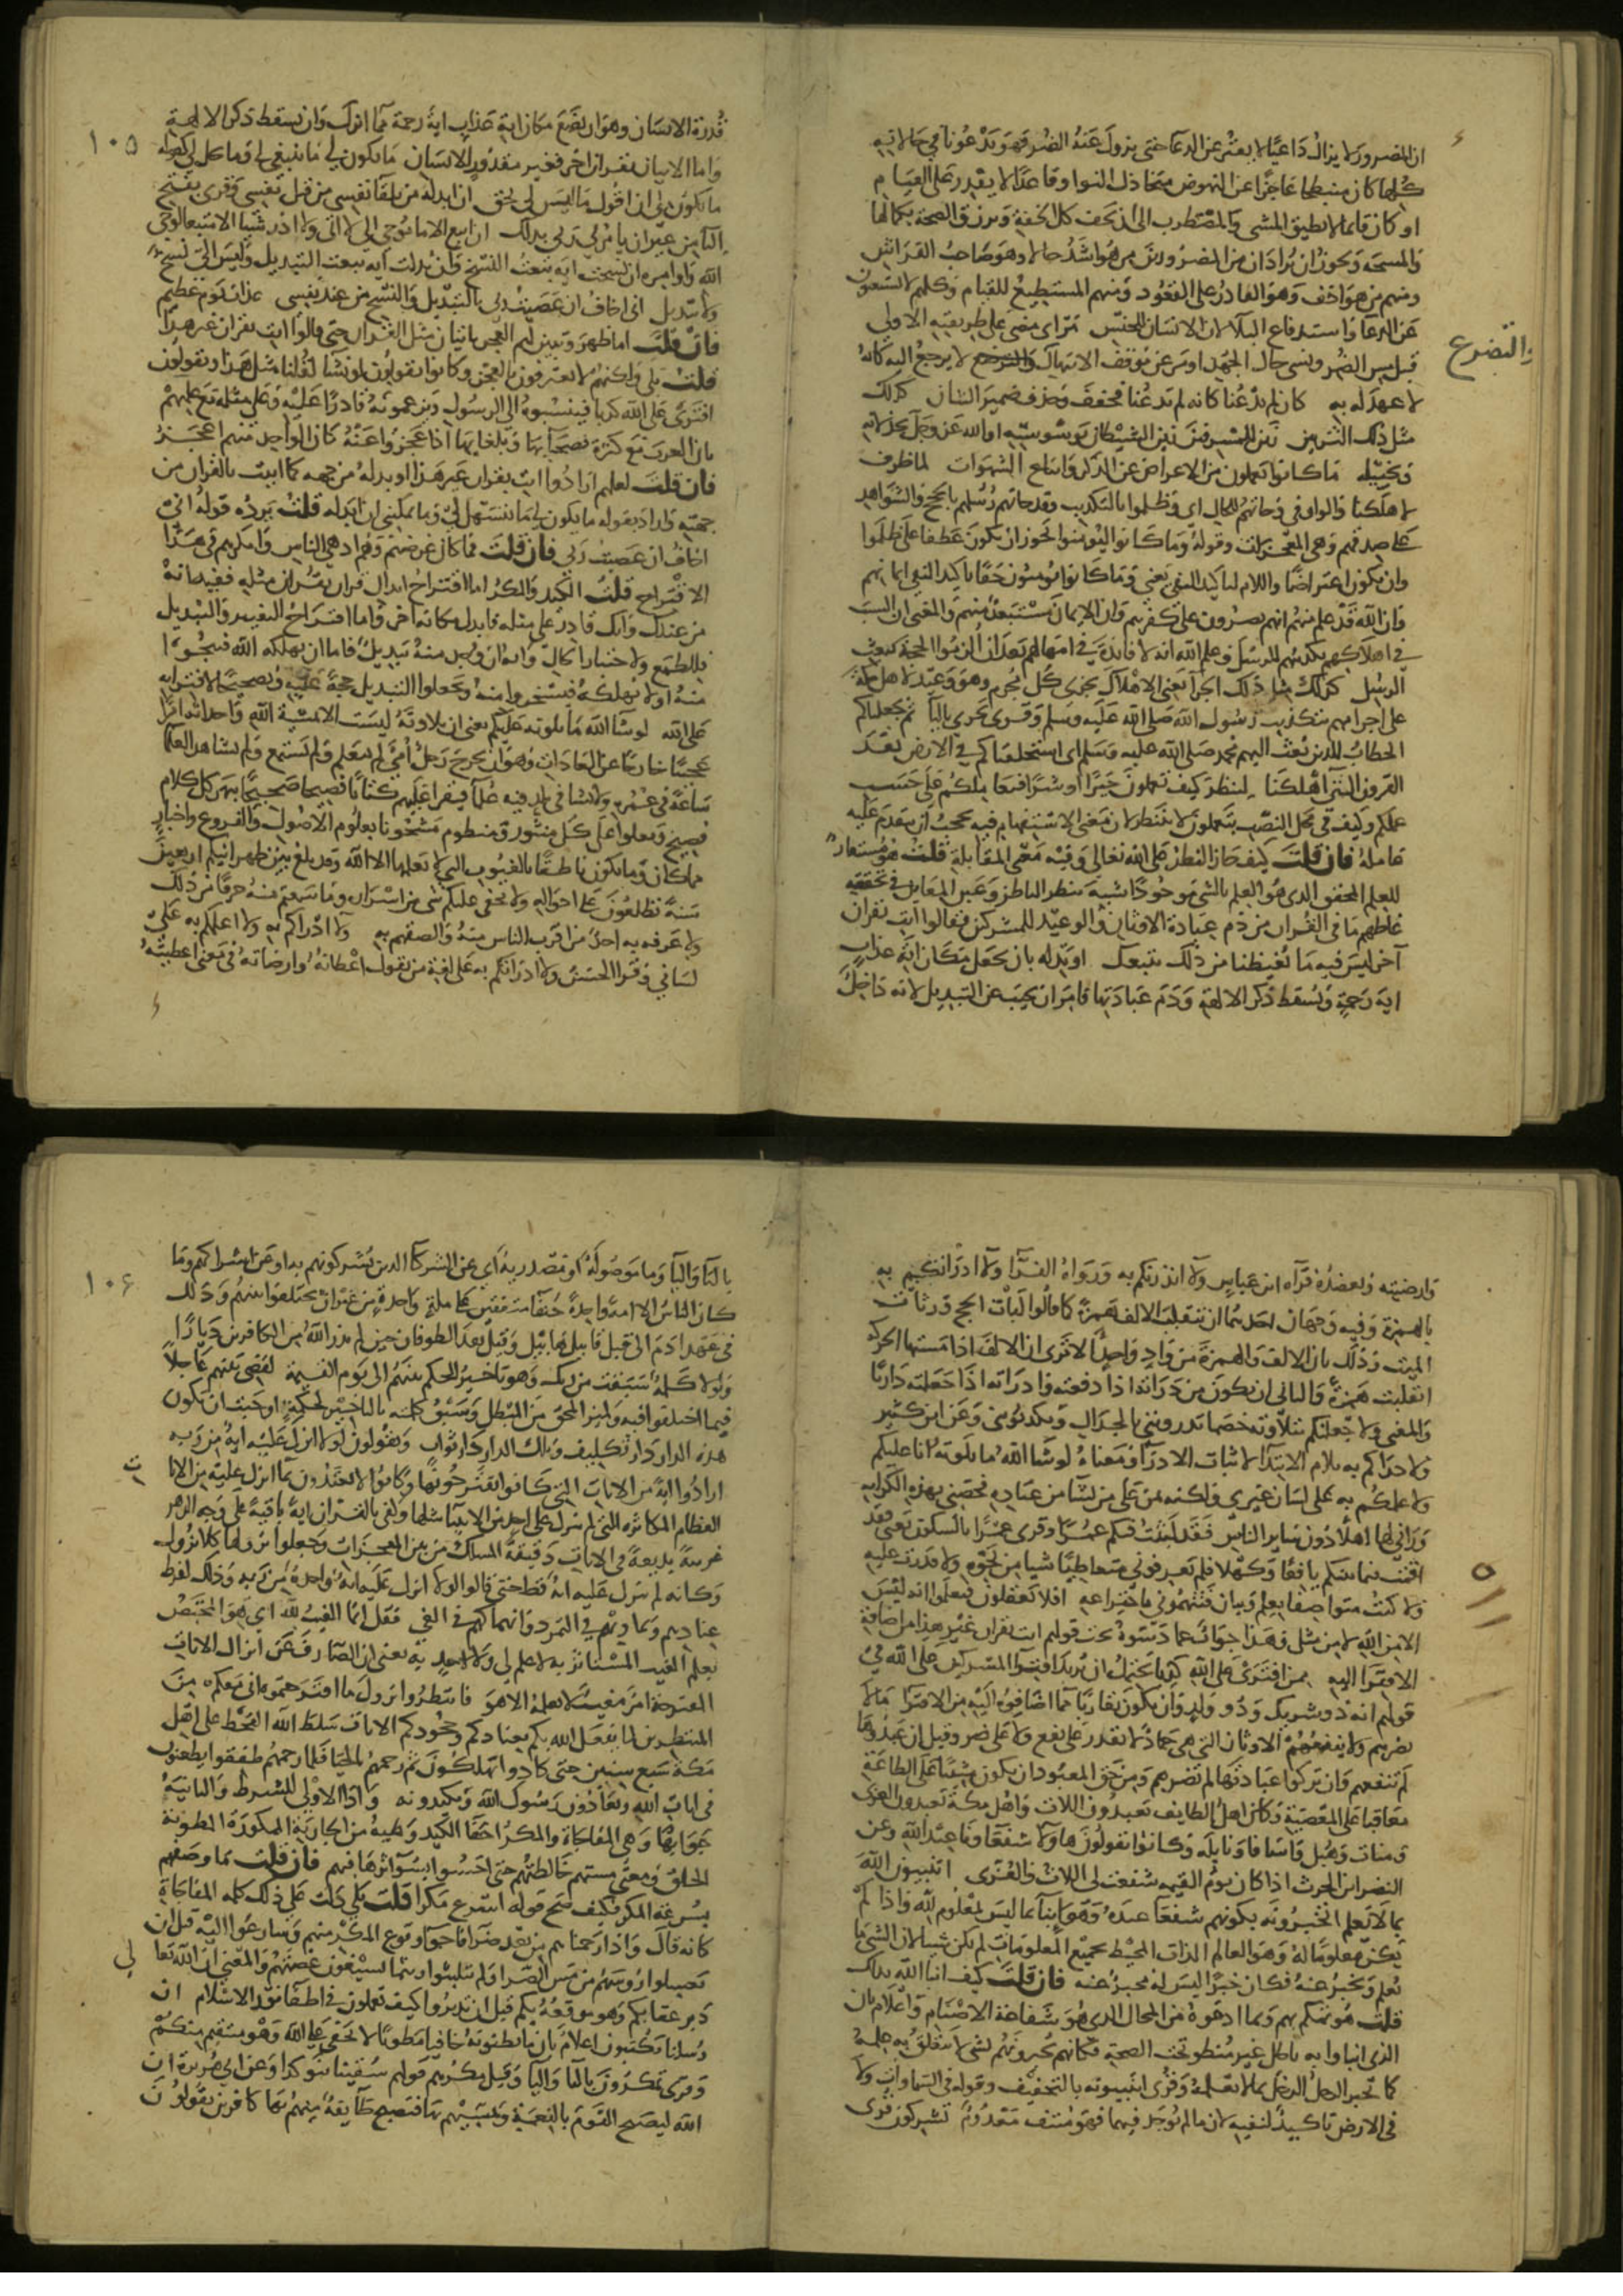 ان المضرور لا يزال داعيا لا يفتر عن الدعا حتى يزول عنه الضر فهو يدعونا في حالاته
كلها كان منبطحا عاجزا عن النهوض متخاذل النوا وقاعدا لا يقدر على القيام
او كان قائما لا يطيق المشي والمضطرب الى ان تخف كل الخفة ويرزق الصحة بكمالها
والمسحة ويجوز ان يراد ان من المضرورين من هو اشد حالا وهو صاحب الفراش
ومنهم من هو اخف وهو القادر على القعود ومنهم المستطيع للقيام وكلهم لا يستغنون
عن الدعا واستدفاع البلا لان الانسان للجنس مر اي مضى على طريقته الاولى
قبل مس الضر ونسي حال الجهد او مر عن موقف الابتهال لا يرجع اليه كانه
والتضرع
لا عهد له به كان لم يدعنا كانه لم يدعنا فخفف وحذف ضمير الشان كذلك
مثل ذلك التزيين زين للمسرفين زين الشيطان بوسوسته او الله عز وجل بخذلانه
وتخليته ما كانوا يعملون من الاعراض عن الذكر واتباع الشهوات لما ظرف
لاهلكنا والواو في وجاتهم للحال اي وظلموا بالتكذيب وقد جاتهم رسلهم بالحجج والشواهد
على صدقهم وهي المعجزات وقوله وما كانوا ليؤمنوا يجوز ان يكون عطفا على ظلموا
وان يكون اعتراضا واللام لتاكيد النفي يعني وما كانوا يؤمنون حقا تاكيد النفي ايمانهم
فان الله قد علم منهم انهم يصرون على كفرهم وان الايمان مستبعد منهم والمعنى ان السبب
في اهلاكهم تكذيبهم للرسل وعلم الله انه لا فائدة في امهالهم بعد ان الزموا الحجة ببعث
الرسل كذلك مثل ذلك الجزا يعني الاهلاك نجزي كل مجرم وهو وعيد لاهل مكة
على اجرامهم بتكذيب رسول الله صلى الله عليه وسلم وقرى يجزي باليا ثم جعلناكم
الخطاب للذين بعث اليهم محمد صلى الله عليه وسلم اي استخلفناكم في الارض بعد
القرون التي اهلكنا لننظر كيف تعملون خيرا او شرا فنعاملكم على حسب
عملكم وكيف في محل النصب بتعملون لا بننظر لان معنى الاستفهام فيه يحجب ان يتقدم عليه
عامله فان قلت كيف جاز النظر على الله تعالى وفيه معنى المقابلة قلت هو مستعار
للعلم المحقق الذي هو العلم بالشي موجودا شبه بنظر الناظر وعين المعاين في تحققه
غاظهم ما في القران من ذم عبادة الاوثان والوعيد للمشركين فقالوا ايت بقران
آخر ليس فيه ما يغيظنا من ذلك نتبعك او بدله بان تجعل مكان اية عذاب
اية رحمة وتسقط ذكر الالهة وذم عبادتها فامر ان يجيب عن التبديل لانه داخل
١٠٥
قدرة الانسان وهو ان يضع مكان اية عذاب اية رحمة مما انزل وان يسقط ذكر الالهة
واما الاتيان بقران اخر فغير مقدور للانسان ما يكون لي ما ينبغي لي وما يحل لي كقوله
ما يكون لي ان اقول ما ليس لي بحق ان ابدله من تلقا نفسي من قبل نفسي وقرى بفتح
التا من غير ان يامرني ربي بذلك ان اتبع الا ما يوحى الي لا اتي ولا اذر شيا الا متبعا لوحي
الله واوامره ان نسخت اية تبعت النسخ وان بدلت اية تبعت التبديل وليس الي نسخ
ولا تبديل اني اخاف ان عصيت ربي بالتبديل والنسخ من عند نفسي عذاب يوم عظيم
فان قلت اما ظهر وتبين لهم العجز باتيان مثل القران حتى قالوا ايت بقران غير هذا
قلت بلى ولكنهم لا يعترفون بالعجز وكانوا يقولون لو نشا لقلنا مثل هذا ويقولون
افترى على الله كذبا فينسبونه الى الرسول ويزعمونه قادرا عليه وعلى مثله مع علمهم
بان العرب مع كثرة فصحائها وبلغائها اذا عجزوا عنه كان الواحد منهم اعجز
فان قلت لعلهم ارادوا ايت بقران غير هذا او بدله من جهه كما اتيت بالقران من
جهته واراد بقوله ما يكون لي ما يتسهل لي وما يمكنني ان ابدله قلت يرده قوله اني
اخاف ان عصيت ربي فان قلت فما كان غرضهم وهم ادهى الناس وامكرهم في هذا
الاقتراح قلت الكيد والمكر اما اقتراح ابدال قران بقران مثله ففيه انه
من عندك وانك قادر على مثله فابدل مكانه اخر واما اقتراح التغيير والتبديل
فللطمع ولاختبار الحال وانه ان وجد منه تبديل فاما ان يهلكه الله فينجوا
منه او لا يهلكه فيسخروا منه ويجعلوا التبديل حجة عليه وتصحيحا لافترايه
على الله لو شا الله ما تلوته عليكم يعني ان تلاوته ليست الا بمشية الله واحداثه امرا
عجيبا خارجا عن العادات وهو ان يخرج رجل امي لم يتعلم ولم يستمع ولم يشاهد العلما
ساعة في عمره ولا نشا في بلد فيه علما فيقرا عليهم كتابا فصيحا صحيحا يبهر كل كلام
فصيح ويعلوا على كل منثور ومنظوم مشحونا بعلوم الاصول والفروع واخبار
مما كان وما يكون ناطقا بالغيوب التي لا يعلمها الا الله وقد بلغ بين ظهرانيكم اربعين
سنة تطلعون على احواله ولا يخفى عليكم شي من اسراره وما سمعتم منه حرفا من ذلك
ولا عرفه به احد من اقرب الناس منه والصقهم به ولا ادراكم به ولا اعلمكم به على
لساني وقرا الحسن ولا ادراتكم به على لغة من يقول اعطاته وارضاته في معنى اعطيته
وارضيته وتعضده قراه ابن عباس ولا انذرتكم به ورواه الفرا ولا ادراتكم به
بالهمزة وفيه وجهان احدهما ان تقلب الالف همزة كما قالوا لبات بالحج ورثات
الميت وذلك بان الالف والهمزة من واد واحد الا ترى ان الالف اذا مستها الحركة
انقلبت همزة والثاني ان يكون من دراته اذا دفعته وادراته اذا جعلته داريا
والمعنى ولا جعلتكم بتلاوته خصما تدرونني بالجدال وتكذبونني وعن ابن كثير
ولا دراكم به بلام الابتدا لاثبات الادرا ومعناه لو شا الله ما تلوته انا عليكم
ولاعلمكم به على لسان غيري ولكنه يمن على من يشا من عباده فخصني بهذه الكرامة
ورآني لها اهلا دون ساير الناس فقد لبثت فيكم عمرا وقرى عمرا بالسكون يعني فقد
اقمت فيما بينكم يافعا وكهلا فلم تعرفوني متعاطيا شيا من نحوه ولا قدرت عليه
ولا كنت متواصفا بعلم وبيان فتتهموني باختراعه افلا تعقلون فتعلموا انه ليس
الا من الله لا من مثلي وهذا جواب عما دسوه تحت قولهم ايت بقران غير هذا من اضافة
الافترا اليه فمن افترى على الله كذبا يحتمل ان يريد افترا المشركين على الله في
قولهم انه ذو شريك وذو ولد وان يكون تفاديا مما اضافوه اليه من الافترا ما لا
يضرهم ولا ينفعهم الاوثان التي هي جماد لا تقدر على نفع ولا على ضر وقيل ان عبدوها
لم تنفعهم وان تركوا عبادتها لم تضرهم ومن حق المعبود ان يكون مثيبا على الطاعة
معاقبا على المعصية وكان اهل الطايف يعبدون اللات واهل مكة يعبدون العزى
ومنات وهبل واسافا ونايلة وكانوا يقولون هاولا شفعاونا عند الله وعن
النضر ابن الحرث اذا كان يوم القيمه شفعت لي اللات والعزى اتنبيون الله
بما لا يعلم اتخبرونه بكونهم شفعا عنده وهو انبا بما ليس بمعلوم لله واذا لم
يكن معلوما له وهو العالم الذات المحيط بجميع المعلومات لم يكن شيا لان الشي ما
يعلم ويخبر عنه فكان خبرا ليس له مخبر عنه فان قلت كيف انبا الله بذلك
قلت هو تهكم بهم وبما ادعوه من المحال الذي هو شفاعة الاصنام واعلام بان
الذي انباوا به باطل غير منطو تحت الصحة فكانهم يخبرونه بشي لا يتعلق به علمه
كما تخبر الرجل الرجل بما لا يعلمه وقرى اتنبيونه بالتخفيف وقوله في السماوات ولا
في الارض تاكيد لنفيه لان ما لم يوجد فيهما فهو منتف معدوم تشركون قرى
١٠٦
بالتا واليا وما موصولة او مصدرية اي عن الشركا الذين تشركونهم به او عن اشراكهم وما
كان الناس الا امة واحدة حنفا متفقين على ملة واحدة من غير ان يختلفوا بينهم وذلك
في عهد ادم الى قبل قابيل هابيل وقيل بعد الطوفان حين لم يذر الله من الكافرين ديارا
ولولا كلمة سبقت من ربك وهو تاخير الحكم بينهم الى يوم القيمة لقضي بينهم عاجلا
فيما اختلفوا فيه ولميز المحق من المبطل وسبق كلمته بالتاخير لحكمة اوجبت ان تكون
هذه الدار دار تكليف وتلك الدار دار ثواب ويقولون لولا انزل عليه اية من ربه
ارادوا اية من الايات التي كانوا يقترحونها وكانوا لا يعتدون بما انزل عليه من الايا
ت
العظام المتكاثره التي لم ينزل على احد من الانبيا مثلها وكفى بالقران اية باقية على وجه الدهر
غريبة بديعة في الايات دقيقة المسلك من بين المعجزات وجعلوا نزولها كلا نزول
وكانه لم ينزل عليه اية قط حتى قالوا لولا انزل عليه اية واحدة من ربه وذلك لفرط
عنادهم وتماديهم في التمرد وانهماكهم في الغي فقل انما الغيب لله اي هو المختص
بعلم الغيب المستاثر به لا علم لي ولا لاحد به يعني ان الصارف عن انزال الايات
المقترحة امر مغيب لا يعلمه الا هو فانتظروا نزول ما اقترحتموه اني معكم من
المنتظرين لما يفعل الله بكم بعنادكم وجحودكم الايات سلط الله القحط على اهل
مكة سبع سنين حتى كادوا يهلكون ثم رحمهم بالحيا فلما رحمهم طفقوا يطعنون
في ايات الله ويعادون رسول الله ويكيدونه واذا الاولى للشرط والثانية
جوابها وهي المفاجاة والمكر اخفا الكيد وطيه من الجارية الممكورة المطوية
الخلق ومعنى مستهم خالطتهم حتى احسوا بسو اثرها فيهم فان قلت ما وصفهم
بسرعة المكر فكيف صح قوله اسرع مكرا قلت بلى دلت على ذلك كلمة المفاجاة
كانه قال واذا رحمناهم من بعد ضرا فاجاوا وقوع المكر منهم وسارعوا اليه قبل ان
يغسلوا رؤسهم من مس الضرا ولم يتلبثوا ريثما يسيغون غصتهم والمعنى ان الله تعا
لى
دبر عقابكم وهو موقعه بكم قبل ان تدبروا كيف تعملون في اطفا نور الاسلام ان
رسلنا يكتبون اعلام بان ما تظنونه خافيا مطويا لا يخفى على الله وهو منتقم منكم
وقرى تمكرون بالتا واليا وقيل مكرهم قولهم سقينا بنو كذا وعن ابي هريرة ان
الله ليصبح القوم بالنعمة ويمسيهم بها فتصبح طايفة منهم بها كافرين يقولون